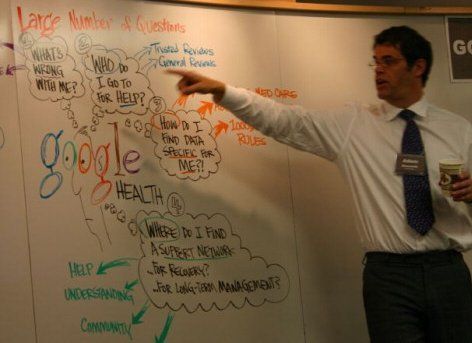 Large Number of Questions
WHAT'S
WRONG
WITH ME?
WHO DO
I GO TO
FOR HELP?
Trusted Reviews
General Reviews
HOW DO I
FIND DATA
SPECIFIC FOR
ME?!
MED CARE
RULES
google
HEALTH
WHERE DO I FIND
A SUPPORT NETWORK
...FOR RECOVERY?
...FOR LONG-TERM MANAGEMENT?
HELP
UNDERSTANDING
COMMUNITY
GO